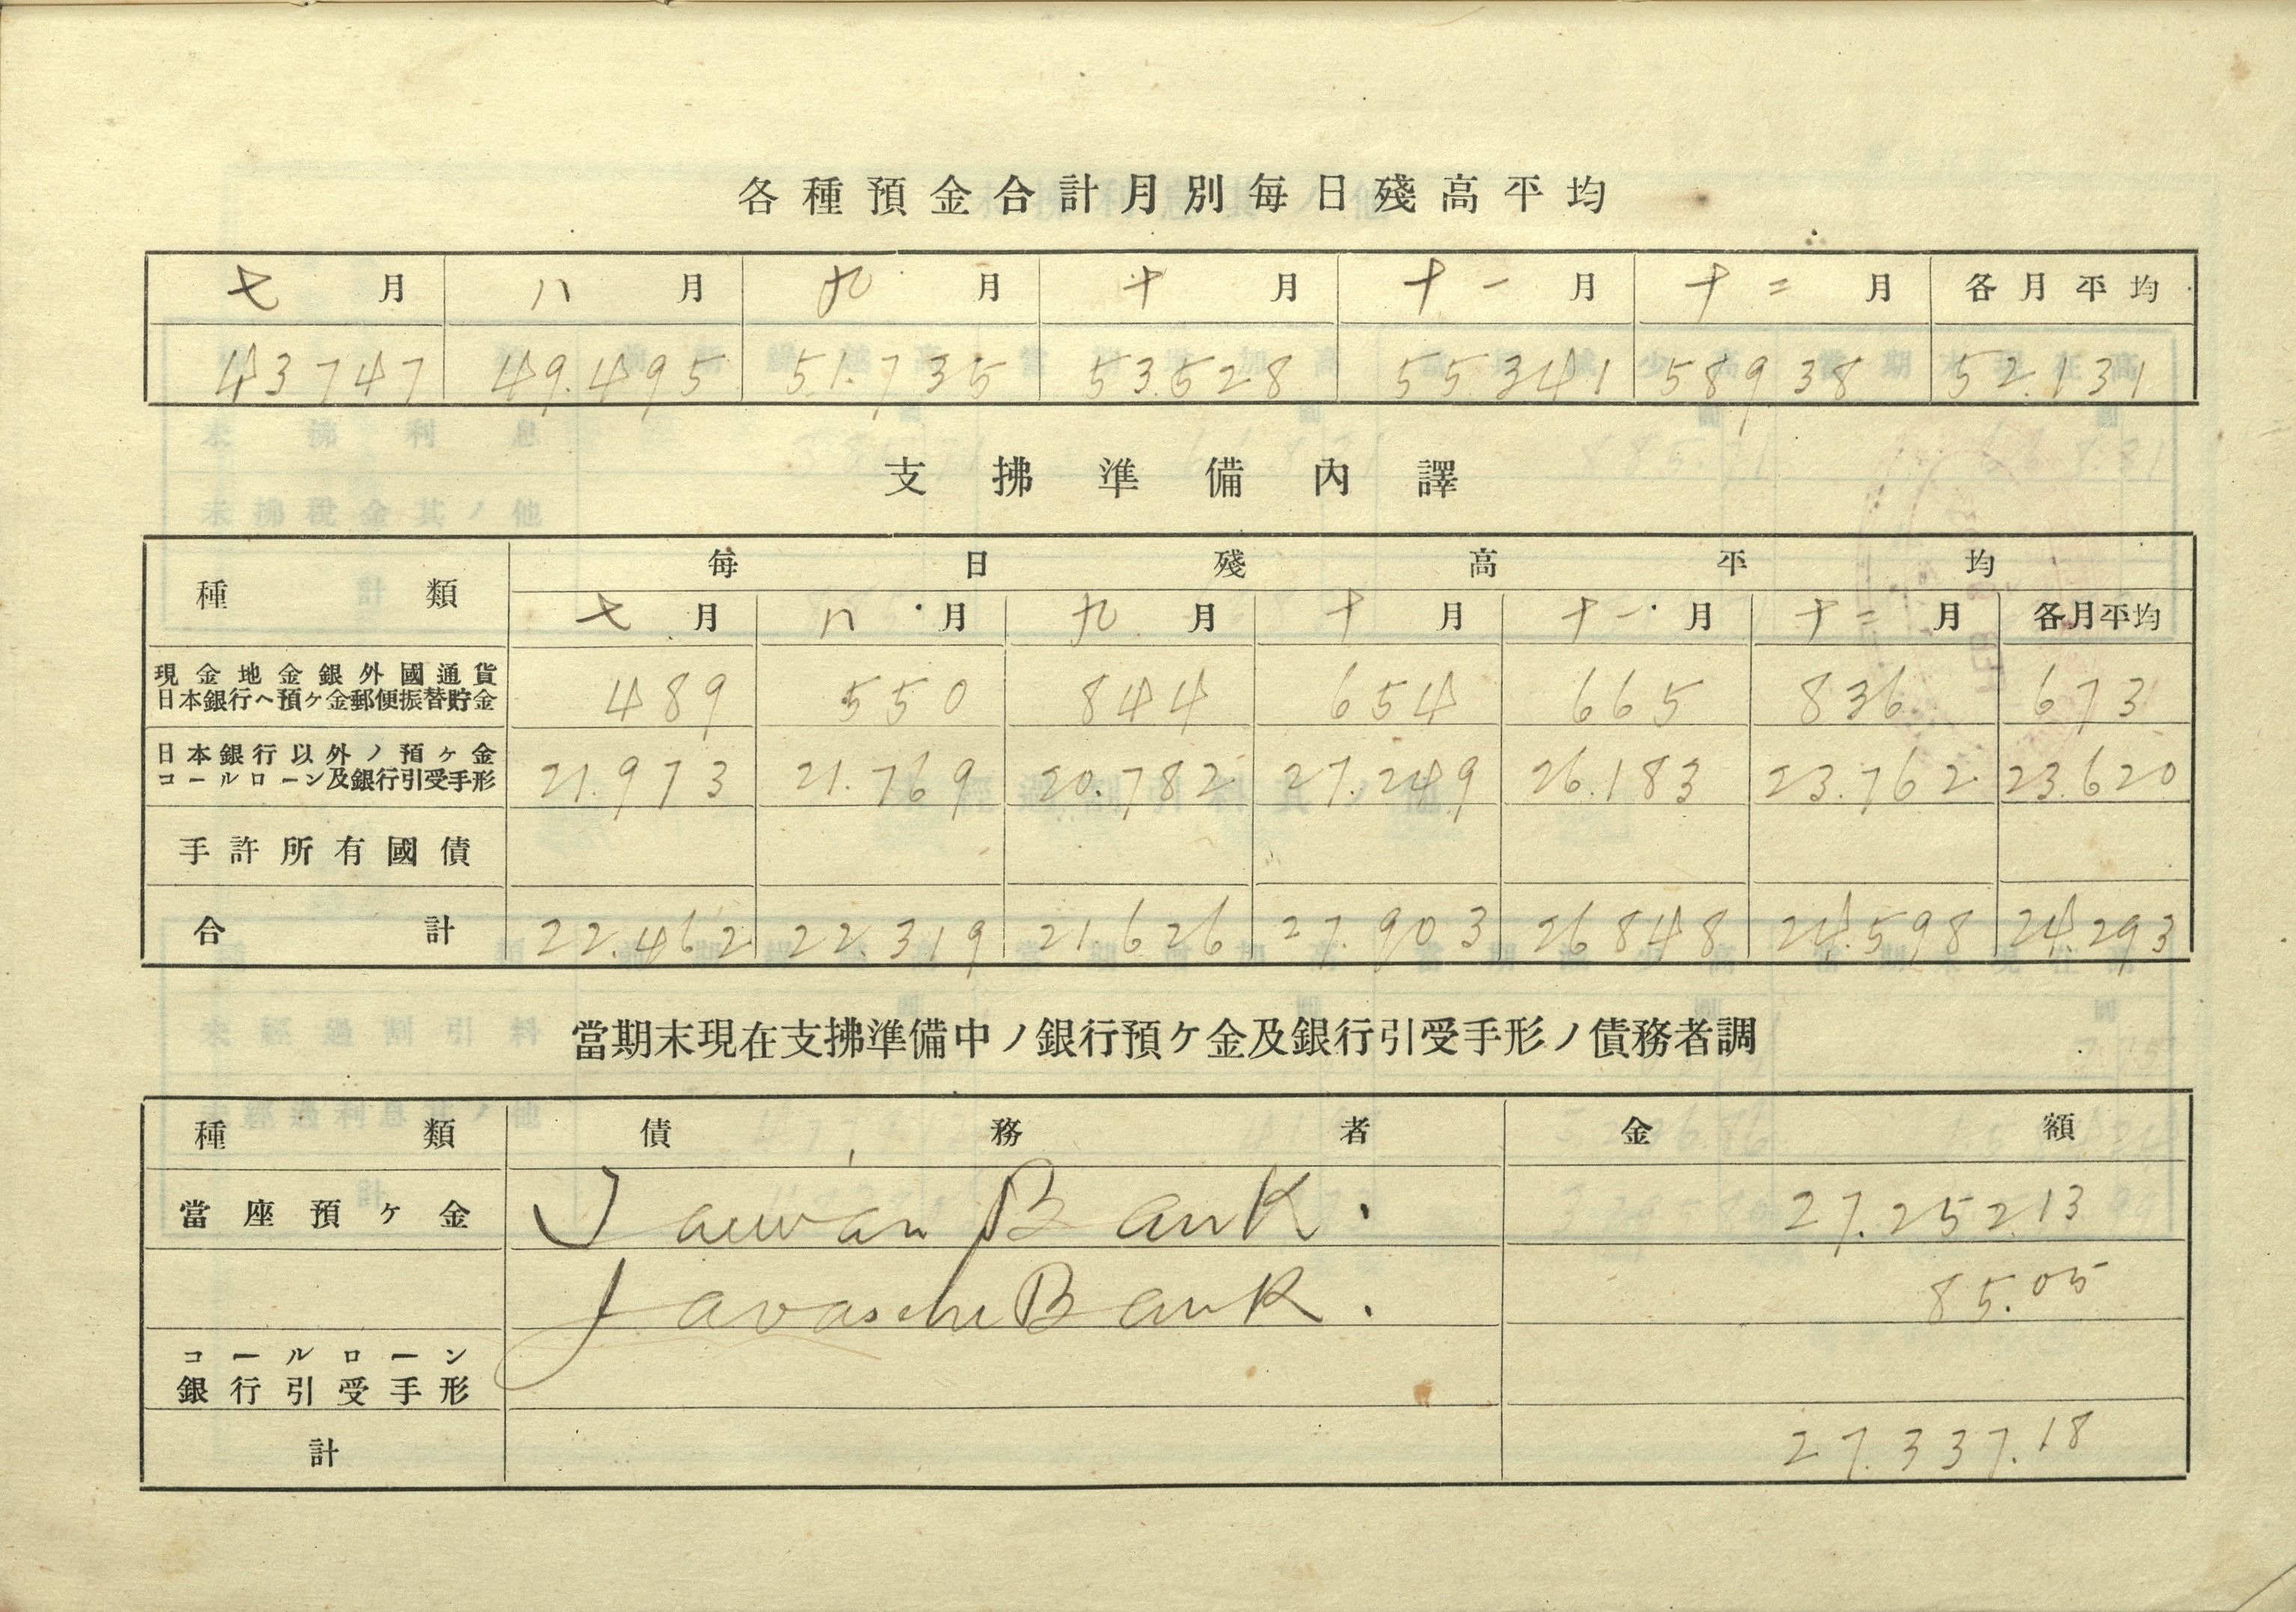 各種預金合計月別每日殘高平均
七月 八月 九月 十月 十一月 十二月 各月平均
43747 49.495 51.735 53.528 55.341 58938 52.131
支拂準備內譯
種類 每日殘高平均
七月 八月 九月 十月 十一月 十二月 各月平均
現金地金銀外國通貨
日本銀行ヘ預ヶ金郵便振替貯金 489 550 844 654 665 836 673
日本銀行以外ノ預ヶ金
コールローン及銀行引受手形 21.973 21.769 20.782 27.249 26.183 23.762 23.620
手許所有國債
合計 22.462 22.319 21.626 27.903 26848 24.598 24.293
當期末現在支拂準備中ノ銀行預ケ金及銀行引受手形ノ債務者調
種類 債務者 金額
當座預ヶ金 Taiwan Bank. 27.252.13
Javasche Bank. 85.05
コールローン
銀行引受手形
計 27.337.18